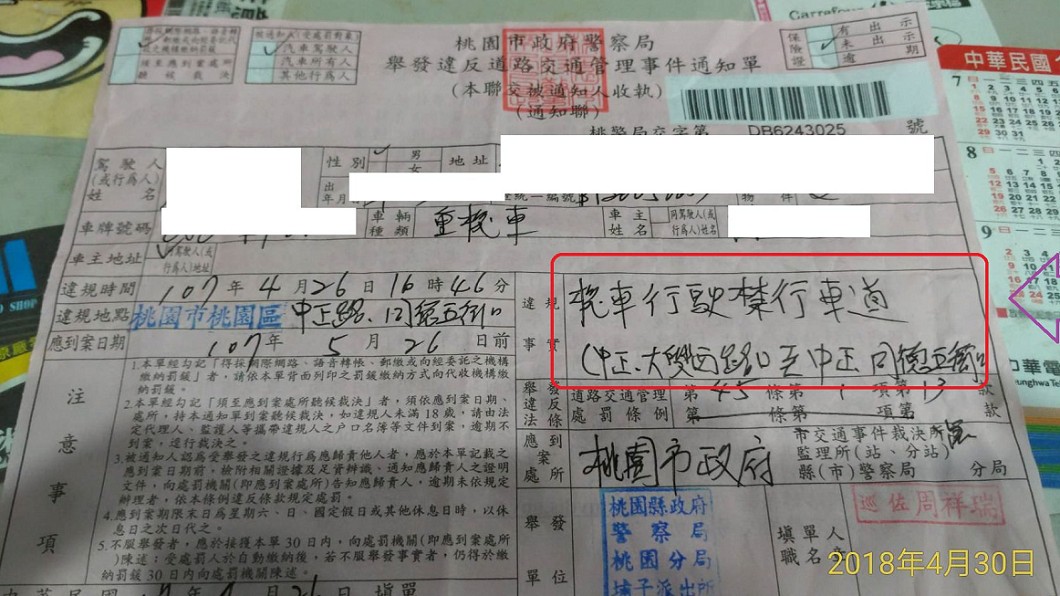 桃園市政府警察局
舉發違反道路交通管理事件通知單
(本聯交被通知人收執)
(通知聯)
被通知人(受處罰對象)
汽車駕駛人
汽車所有人
其他行為人
接至應到案處所
聽候裁決
保險證
有出示
未出示
逾期
Carrefour
桃警局交字第 DB6243025 號
駕駛人
(或行為人)
姓名
性別
男
女
地址
車牌號碼
車輛種類
重機車
車主姓名
同駕駛人(或行為人)姓名
車主地址
同駕駛人(或行為人)地址
違規時間 107年4月26日16時46分
違規地點 桃園市桃園區 中正路、同德五街口
應到案日期 107年5月26日前
違規事實
機車行駛禁行車道
(中正、大興西路口至中正同德五街口
舉發違反法條
道路交通管理處罰條例
第45條第1項第13款
第 條第 項第 款
應到案處所
桃園市政府
市交通事件裁決所
監理所(站、分站)
縣(市)警察局 分局
注意事項
1.本單經勾記「得採網際網路、語音轉帳、郵繳或向經委託之機構
繳納罰鍰」者,請依本單背面列印之罰鍰繳納方式向代收機構繳
納罰鍰。
2.本單經勾記「須至應到案處所聽候裁決」者,須依應到案日期、
處所,持本通知單到案聽候裁決,如違規人未滿18歲,請由法
定代理人、監護人等攜帶違規人之戶口名簿等文件到案,逾期不
到案,逕行裁決之。
3.被通知人認為受舉發之違規行為應歸責他人者,應於本單記載之
應到案日期前,檢附相關證據及足資辨識、通知應歸責人之證明
文件,向處罰機關(即應到案處所)告知應歸責人,逾期未依規定
辦理者,依本條例違反條款規定處罰。
4.應到案期限末日為星期六、日、國定假日或其他休息日時,以休
息日之次日代之。
5.不服舉發者,應於接獲本單30日內,向處罰機關(即應到案處所)
陳述;受處罰人於自動繳納後,若不服舉發事實者,仍得於繳
納罰鍰30日內向處罰機關陳述。
舉發單位
桃園縣政府
警察局
桃園分局
埔子派出所
填單人職名
巡佐周祥瑞
填單
中華民國
7
8
9
中華電
2018年4月30日